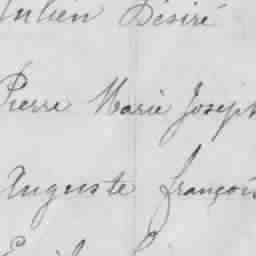 Julien Désiré
Pierre Marie Joseph
Auguste françois